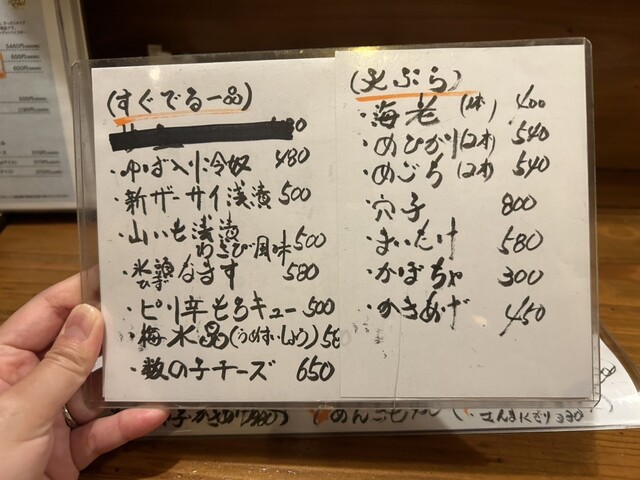 (すぐでる一品)
ゆば入り冷奴 480
・新ザーサイ浅漬 500
・山いも浅漬
わさび風味 500
・氷頭なます 580
ひず
・ピリ辛もろキュー 500
・梅水晶(うめすいしょう)
・数の子チーズ 650
(天ぷら)
・海老(1本) 400
・めひかり(2本) 540
・めごち(2本) 540
・穴子 800
・まいたけ 580
・かぼちゃ 300
・かきあげ 450
さんまにぎり 330